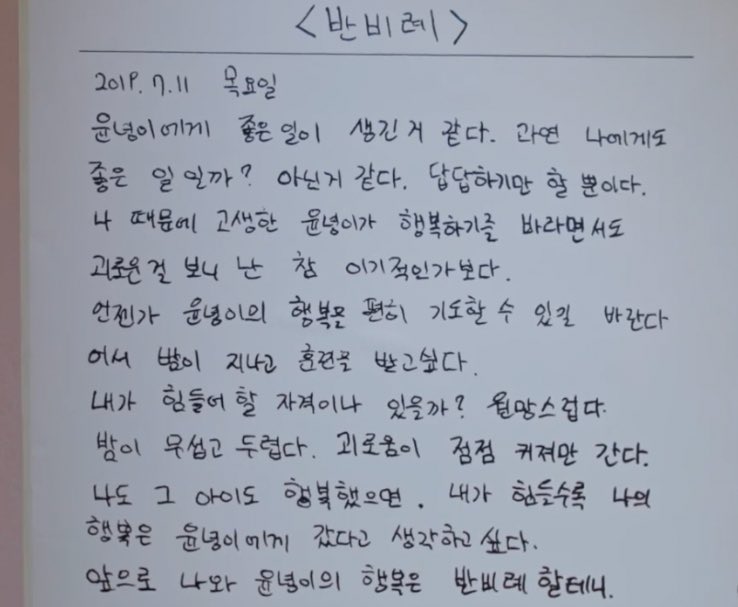 <반비례>
2019. 7. 11 목요일
윤녕이에게 좋은일이 생긴거 같다. 과연 나에게도
좋은 일 일까? 아닌거 같다. 답답하기만 할 뿐이다.
나 때문에 고생한 윤녕이가 행복하기를 바라면서도
괴로운걸 보니 난 참 이기적인가보다.
언젠가 윤녕이의 행복을 편히 기도할 수 있길 바란다
어서 밤이 지나고 훈련을 받고싶다.
내가 힘들어 할 자격이나 있을까? 원망스럽다.
밤이 무섭고 두렵다. 괴로움이 점점 커져만 간다.
나도 그 아이도 행복했으면. 내가 힘들수록 나의
행복은 윤녕이에게 갔다고 생각하고 싶다.
앞으로 나와 윤녕이의 행복은 반비례 할테니.